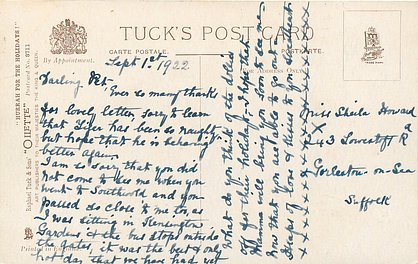 TUCK'S POST CARD
By Appointment.
CARTE POSTALE.
POSTKARTE.
"HURRAH FOR THE HOLIDAYS!"
"OILETTE"
Raphael Tuck & Sons'
Postcard No.
Address Only.
Printed in
Sept 1st 1922
Darling Pet,
Ever so many thanks
for lovely letter, sorry to learn
that Tiger has been so naughty
but hope that he is behaving
better again.
I am so sorry that you did
not come to see me when you
went to Southwold and you
passed so close to me too, as
I was sitting in Kensington
Gardens & the bus stops outside
the gates, it was the best & only
hot day that we have had yet
What do you think of the dollies
off for their holiday. I hope that
Mamma will bring you soon to see me
now that you are able to go out.
Heaps of love & kisses to you & all
Miss Sheila Howard
43 Lowestoft R
Gorleston-on-Sea
Suffolk